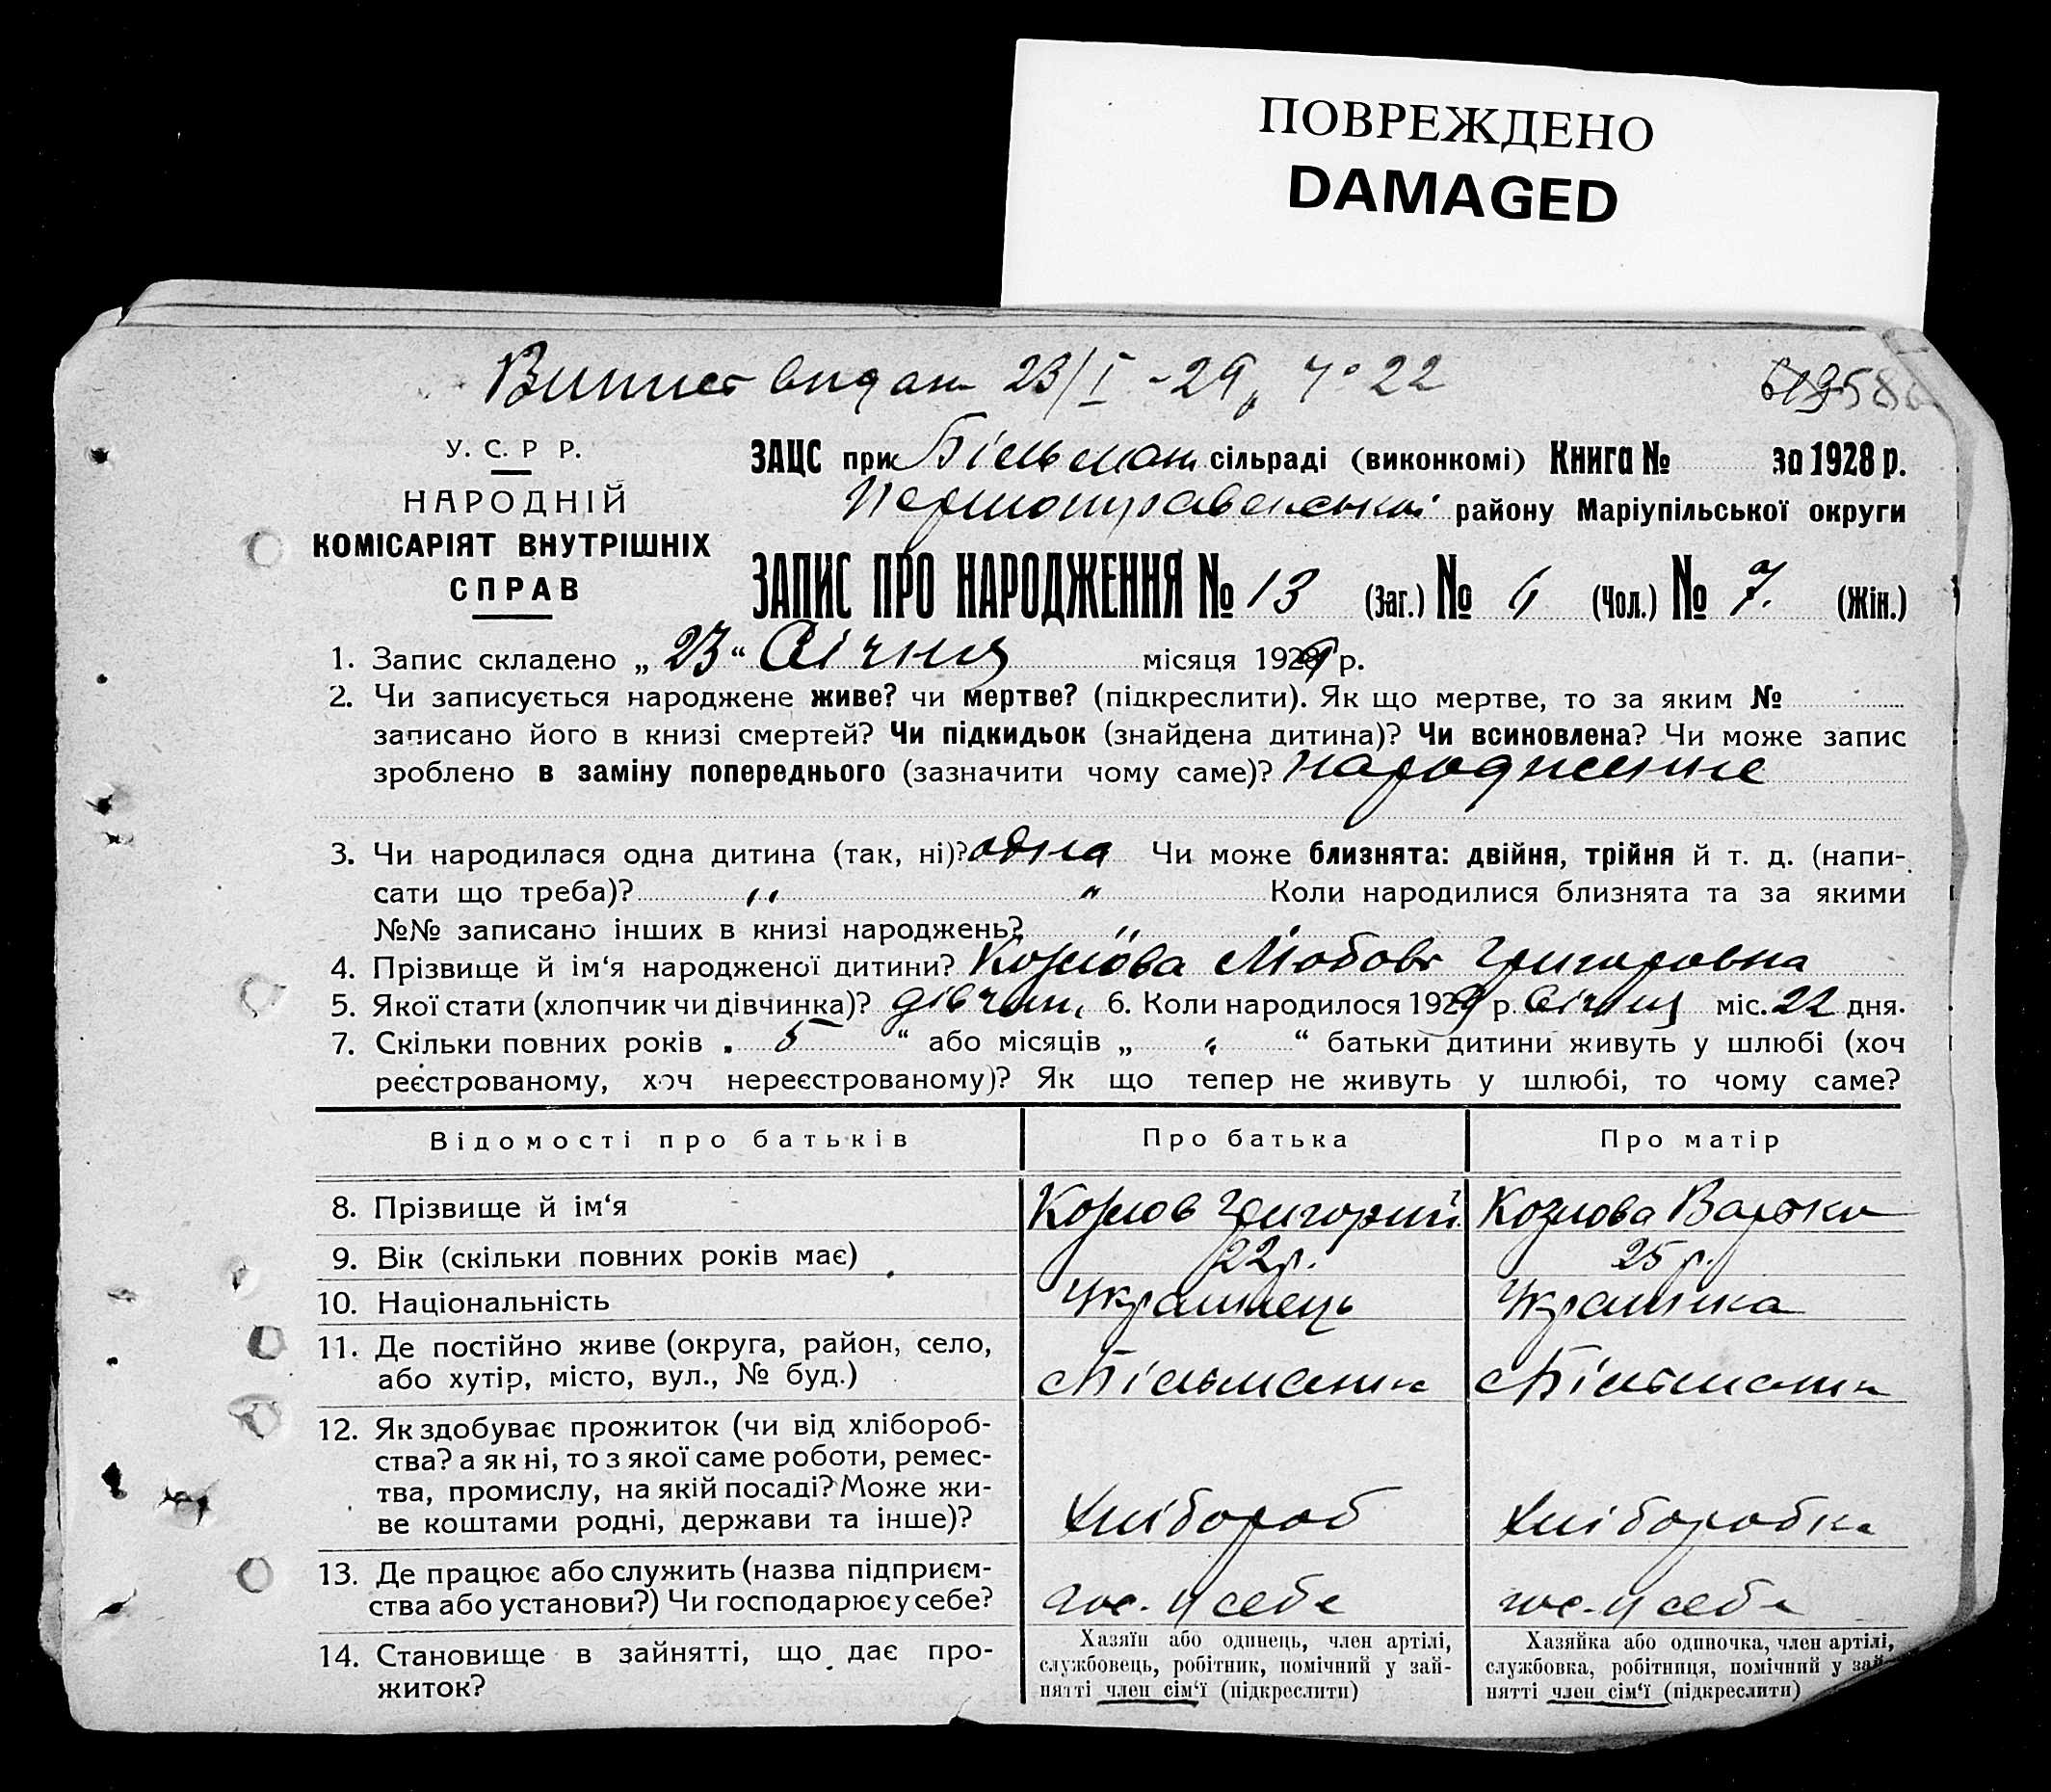 ПОВРЕЖДЕНО
DAMAGED
Випис видан 23/I - 29, ч° 22
У. С. Р Р.
НАРОДНІЙ
КОМІСАРІЯТ ВНУТРІШНІХ
СПРАВ
ЗАЦС при Більман. сільраді (виконкомі) Книга № за 1928 р.
Першотравенської району Маріупільської округи
ЗАПИС ПРО НАРОДЖЕННЯ № 13 (Заг.) № 6 (Чол.) № 7. (Жін.)
1. Запис складено „ 23 “ Січня місяця 1929 р.
2. Чи записується народжене живе? чи мертве? (підкреслити). Як що мертве, то за яким №
записано його в книзі смертей? Чи підкидьок (знайдена дитина)? Чи всиновлена? Чи може запис
зроблено в заміну попереднього (зазначити чому саме)? народження
3. Чи народилася одна дитина (так, ні)? одна Чи може близнята: двійня, трійня й т. д. (напи-
сати що треба)? „ „ Коли народилися близнята та за якими
№№ записано інших в книзі народжень? „
4. Прізвище й ім‘я народженої дитини? Козлова Любовь Григоровна
5. Якої стати (хлопчик чи дівчинка)? дівчин. 6. Коли народилося 1929 р. Січня міс. 22 дня.
7. Скільки повних років „ 5 “ або місяців „ “ батьки дитини живуть у шлюбі (хоч
реєстрованому, хоч нереєстрованому)? Як що тепер не живуть у шлюбі, то чому саме?
Відомості про батьків Про батька Про матір
8. Прізвище й ім‘я Козлов Григорий Козлова Варька
9. Вік (скільки повних років має) 22 р. 25 р.
10. Національність Українець Українка
11. Де постійно живе (округа, район, село,
або хутір, місто, вул., № буд.) Більманка Більманка
12. Як здобуває прожиток (чи від хлібороб-
ства? а як ні, то з якої саме роботи, ремес-
тва, промислу, на якій посаді? Може жи-
ве коштами родні, держави та інше)? Хлібороб Хліборобка
13. Де працює або служить (назва підприєм-
ства або установи?) Чи господарює у себе? гос. у себе гос. у себе
14. Становище в зайнятті, що дає про-
житок?
Хазяїн або одинець, член артілі,
службовець, робітник, помічний у зай-
нятті член сім‘ї (підкреслити)
Хазяйка або одиночка, член артілі,
службовка, робітниця, помічний у зай-
нятті член сім‘ї (підкреслити)